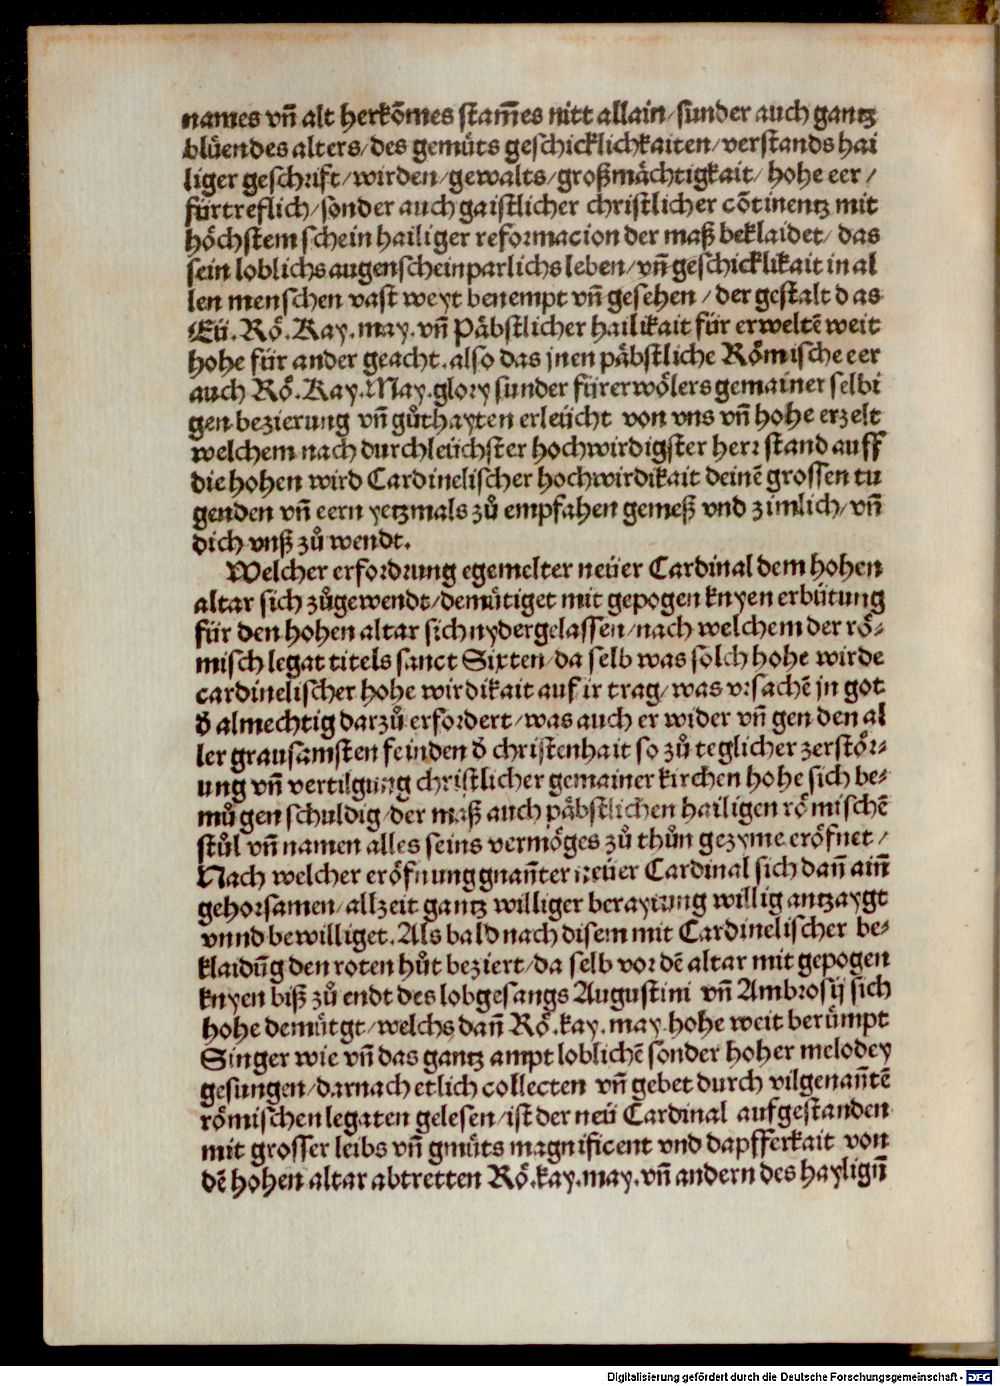 names vñ alt herkõmes stam̃es nitt allain/sunder auch gantz
blüendes alters/des gemüts geschicklichkaiten/verstands hai
liger geschrift/wirden/gewalts/großmächtigkait/hohe eer/
fürtreflich/sonder auch gaistlicher christlicher cõtinentz mit
höchstem schein hailiger reformacion der maß beklaidet/das
sein loblichs augenscheinparlichs leben/vñ geschicklikait in al
len menschen vast weyt benempt vñ gesehen/der gestalt das
Eü. Rö. Kay. may. vñ Päbstlicher hailikait für erweltẽ weit
hohe für ander geacht. also das jnen päbstliche Römische eer
auch Rö. Kay. May. glory sunder fürerwölers gemainer selbi
gen bezierung vñ gůthayten erleücht von vns vñ hohe erzelt
welchem nach durchleüchster hochwirdigster herr stand auff
die hohen wird Cardinelischer hochwirdikait deinẽ grossen tu
genden vñ eern yetzmals zů empfahen gemeß vnd zimlich/vñ
dich vnß zů wendt.
Welcher erfordrung egemelter neüer Cardinal dem hohen
altar sich zůgewendt/demütiget mit gepogen knyen erbütung
für den hohen altar sich nydergelassen/nach welchem der rö-
misch legat titels sanct Sixten/da selb was solch hohe wirde
cardinelischer hohe wirdikait auf ir trag/was vrsachẽ jn got
đ almechtig darzů erfordert/was auch er wider vñ gen den al
ler grausamsten feinden đ christenhait so zů teglicher zerstör-
ung vñ vertilgung christlicher gemainer kirchen hohe sich be-
mů gen schuldig/der maß auch päbstlichen hailigen römischẽ
stůl vñ namen alles seins vermöges zů thůn gezyme eröfnet/
Nach welcher eröfnung gnañter neüer Cardinal sich dañ aiñ
gehorsamen/allzeit gantz williger berayttung willig antzaygt
vnnd bewilliget. Als bald nach disem mit Cardinelischer be-
klaidũg den roten hůt beziert/da selb vor dẽ altar mit gepogen
knyen biß zů endt des lobgesangs Augustini vñ Ambrosij sich
hohe demütgt/welchs dañ Rö. kay. may. hohe weit berümpt
Singer wie vñ das gantz ampt loblichẽ sonder hoher melodey
gesungen/darnach etlich collecten vñ gebet durch vilgenañtẽ
römischen legaten gelesen/ist der neü Cardinal aufgestanden
mit grosser leibs vñ gmüts magnificent vnd dapfferkait von
dẽ hohen altar abtretten Rö. kay. may. vñ andern des hayligñ
Digitalisierung gefördert durch die Deutsche Forschungsgemeinschaft - DFG